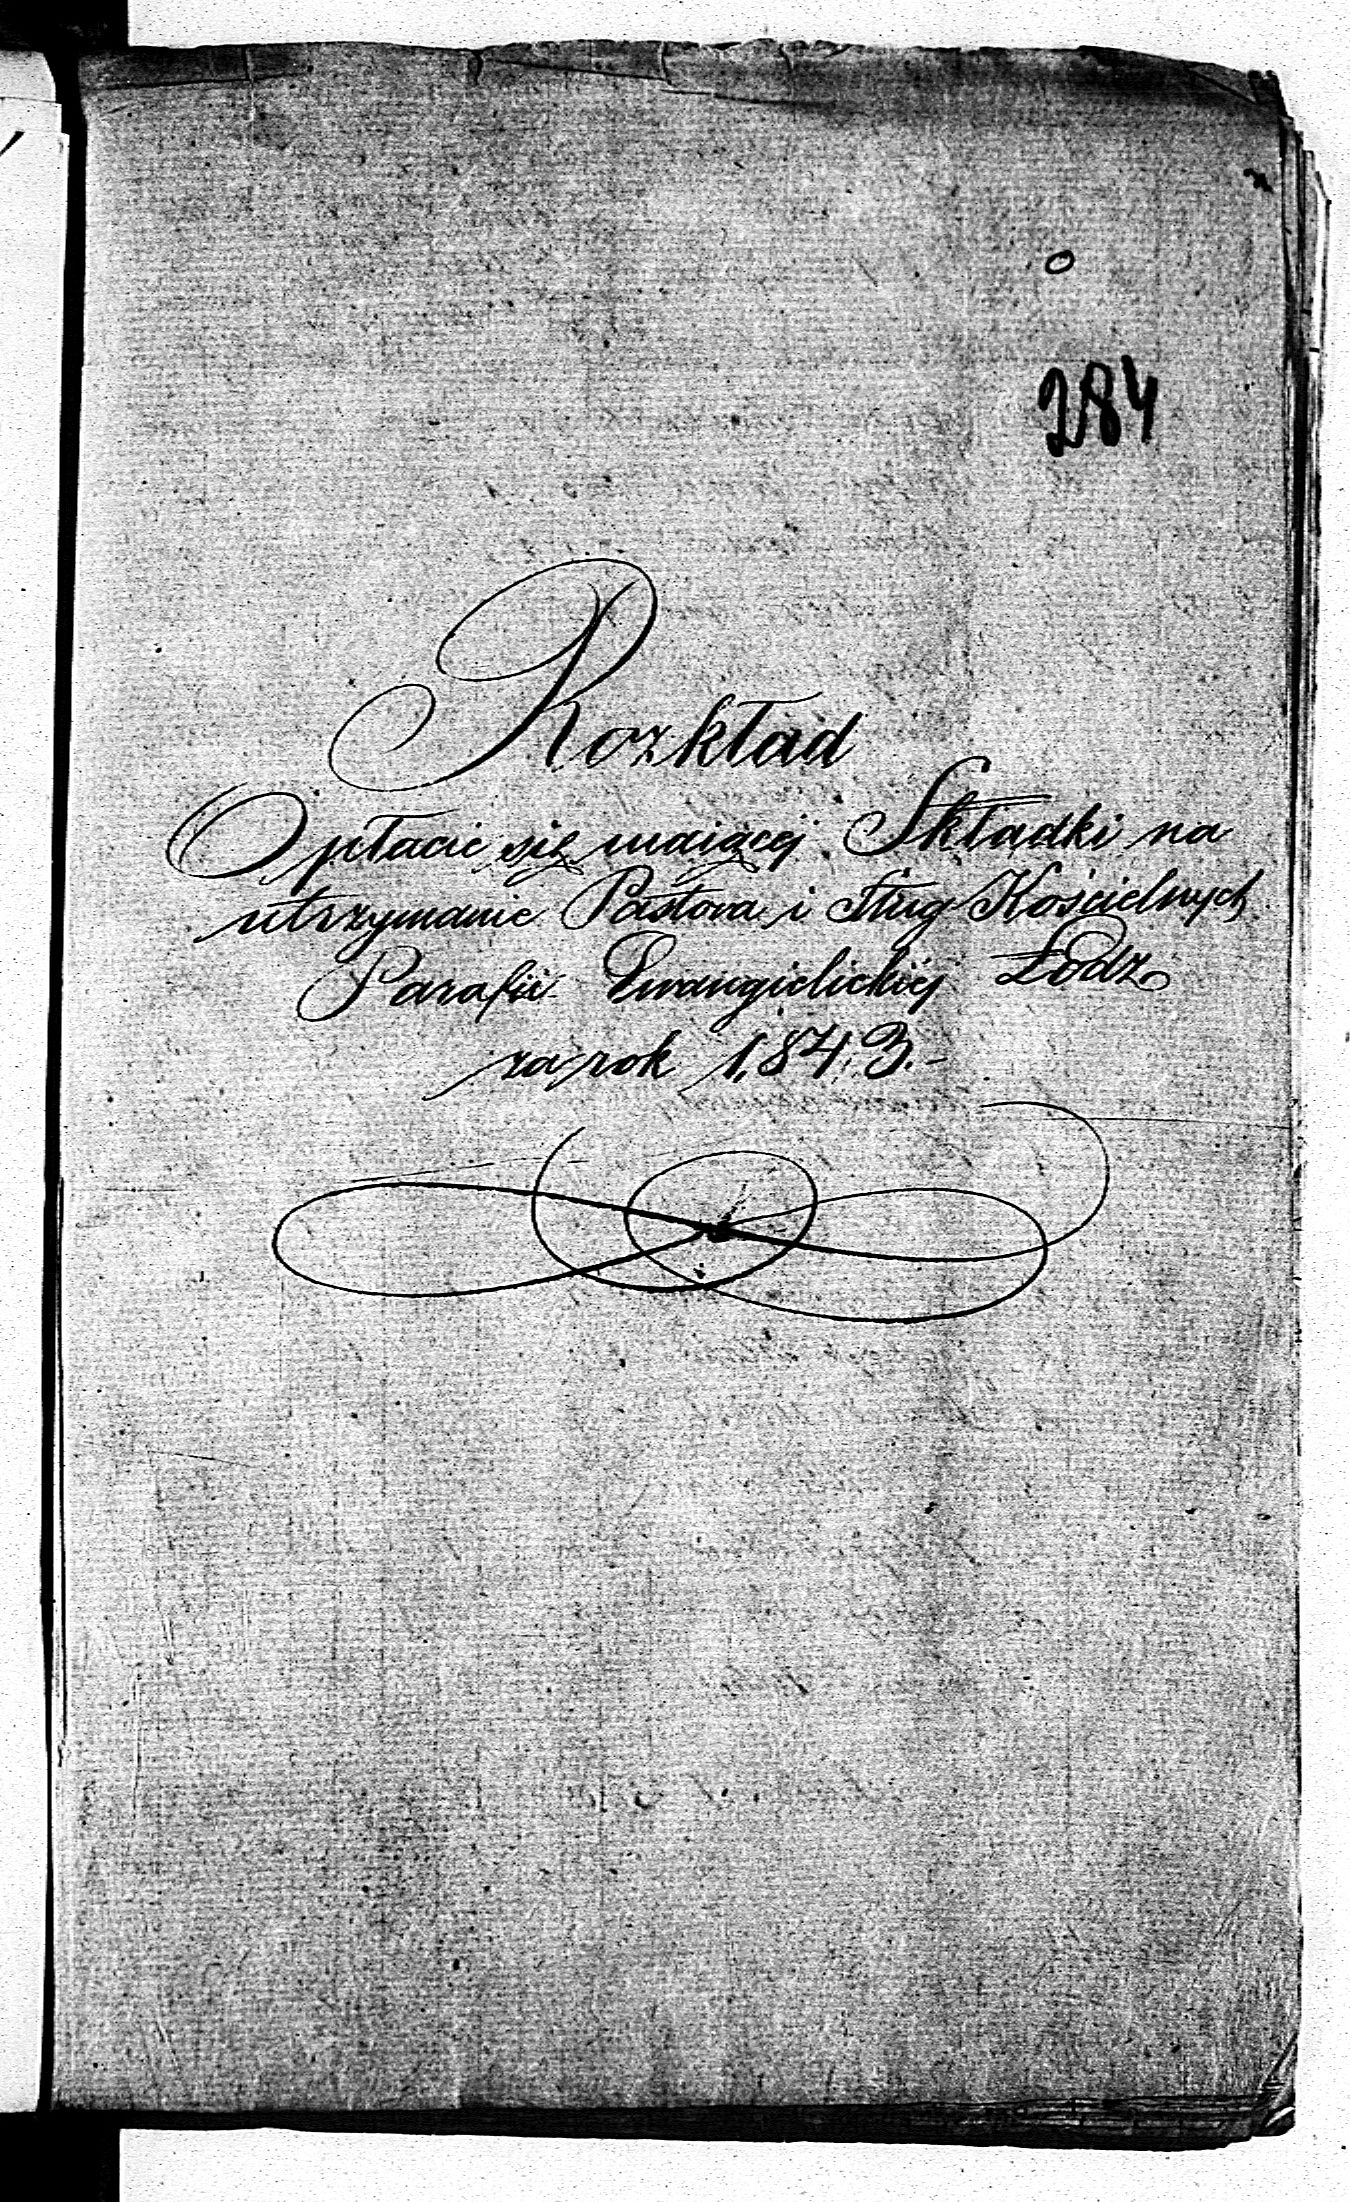 284
Rozkład
Opłacić się maiącej Składki na
utrzymanie Pastora i sług Kościelnych
Parafii Ewangielickiej Łodz
za rok 1843.